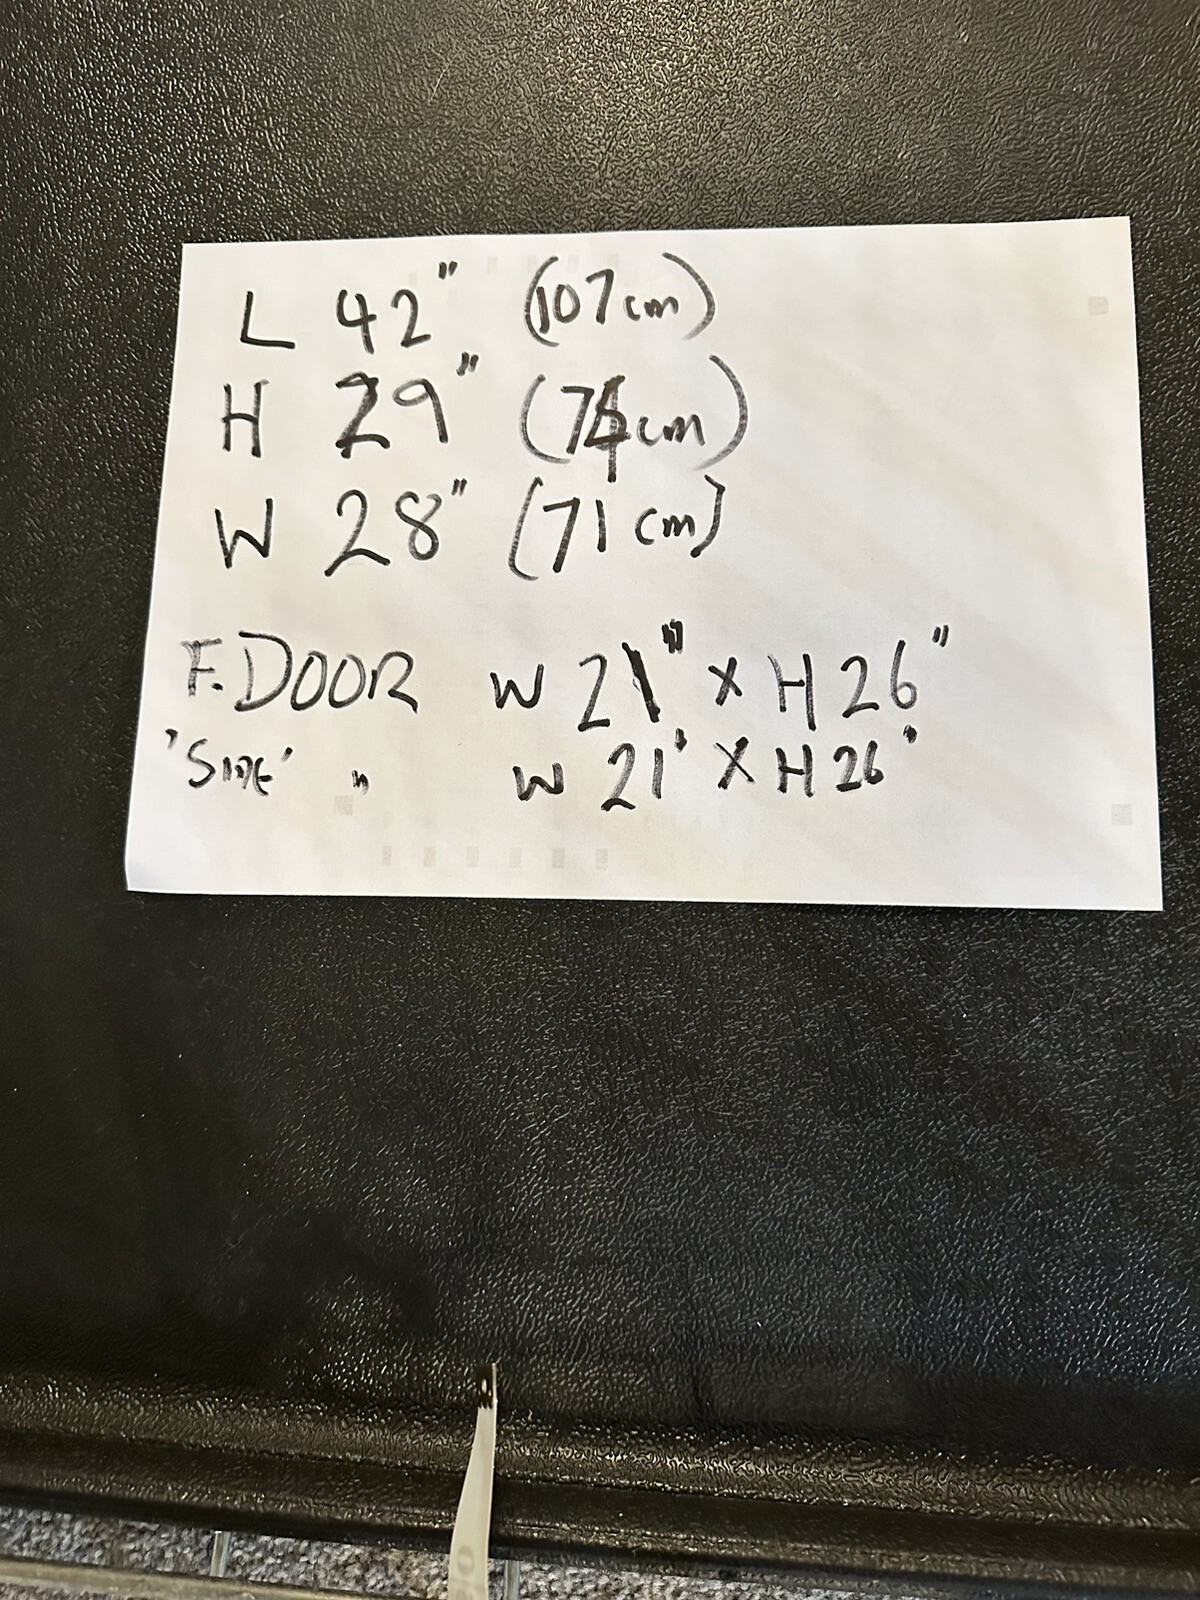 L 42" (107cm)
H 29" (74cm)
W 28" (71cm)
F.DOOR W 21" X H 26"
'SIDE' " W 21' X H 26'